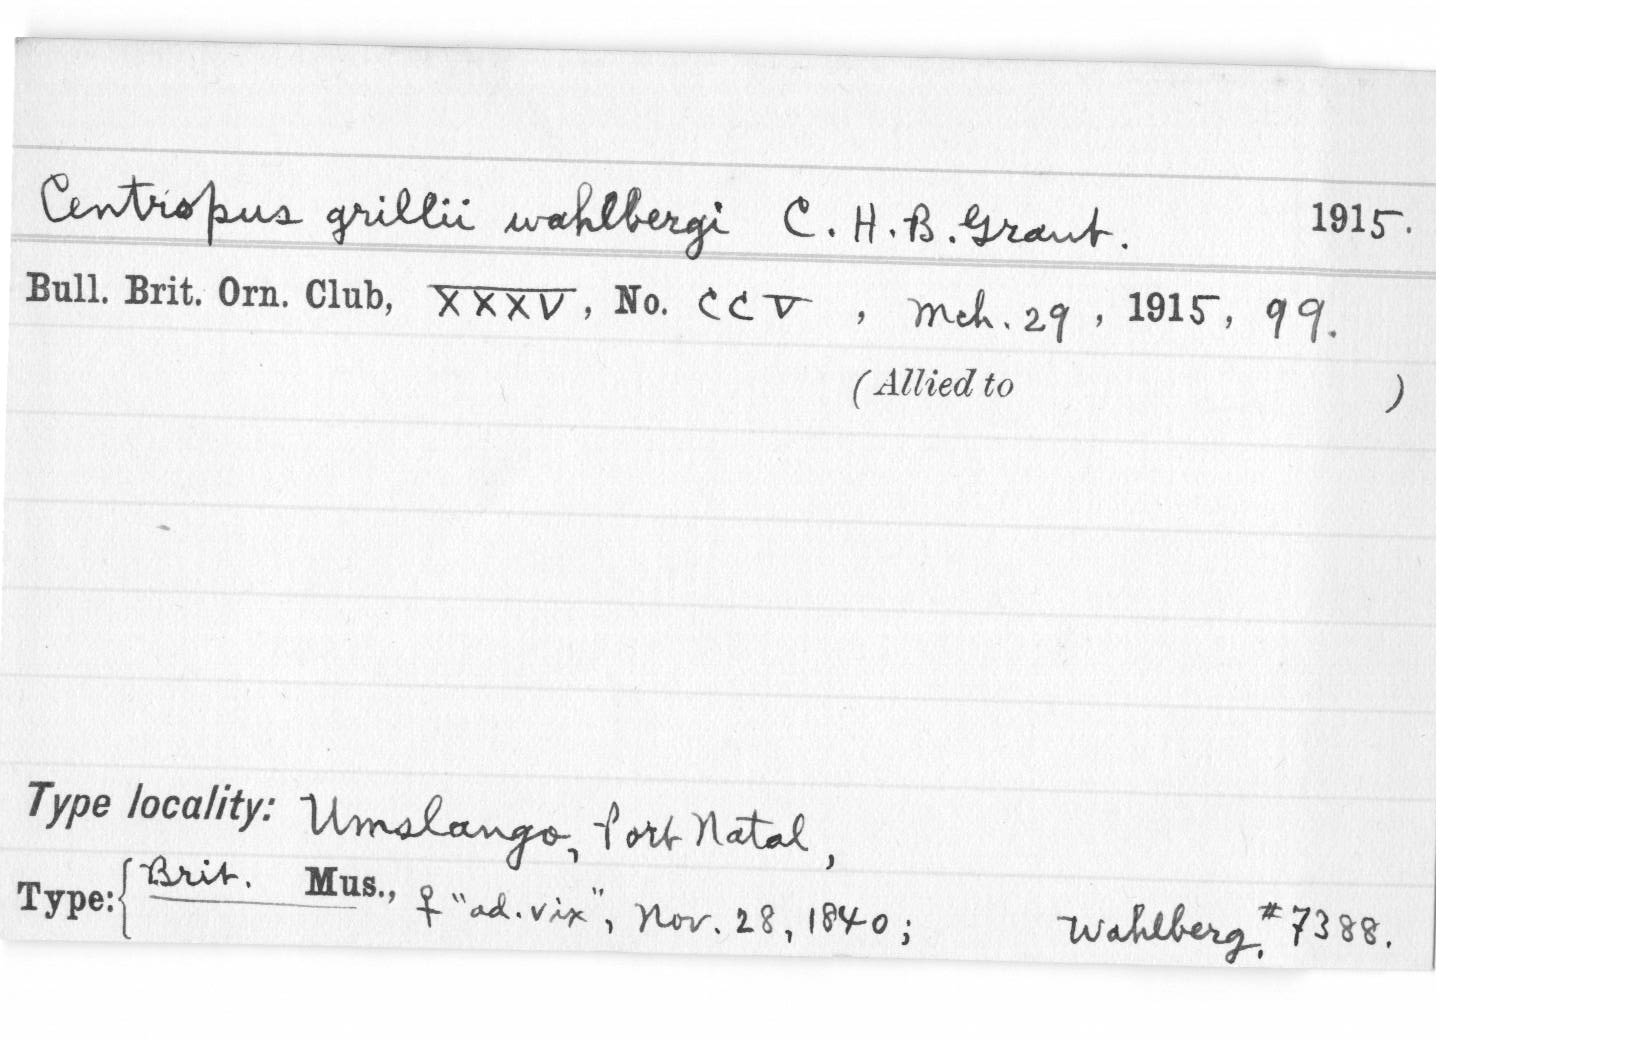 Centropus grillii wahlbergi C. H. B. Grant. 1915.
Bull. Brit. Orn. Club, XXXV, No. CCV, Mch. 29, 1915, 99.
(Allied to )
Type locality: Umslango, Port Natal,
Type: { Brit. Mus., ♀ "ad. vix", Nov. 28, 1840; Wahlberg, #7388.